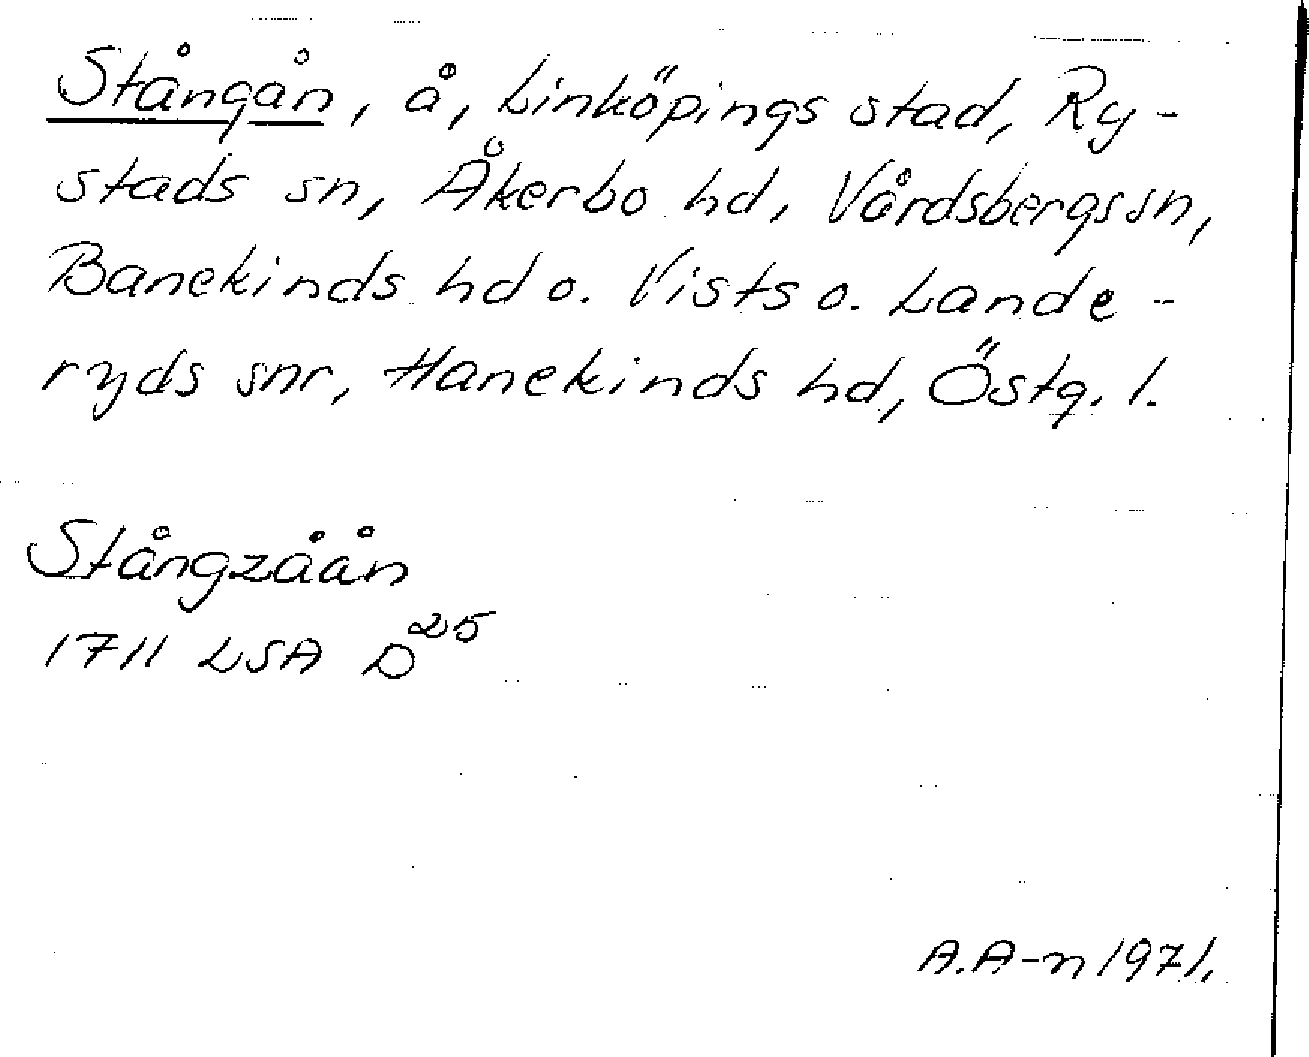 Stångån, å, Linköpings stad, Ry-
stads sn, Åkerbo hd, Vårdsbergs sn,
Banekinds hd o. Vists o. Lande-
ryds snr, Hanekinds hd, Östg. l.
Stångzåån
1711 LSA D25
A.A-n 1971.